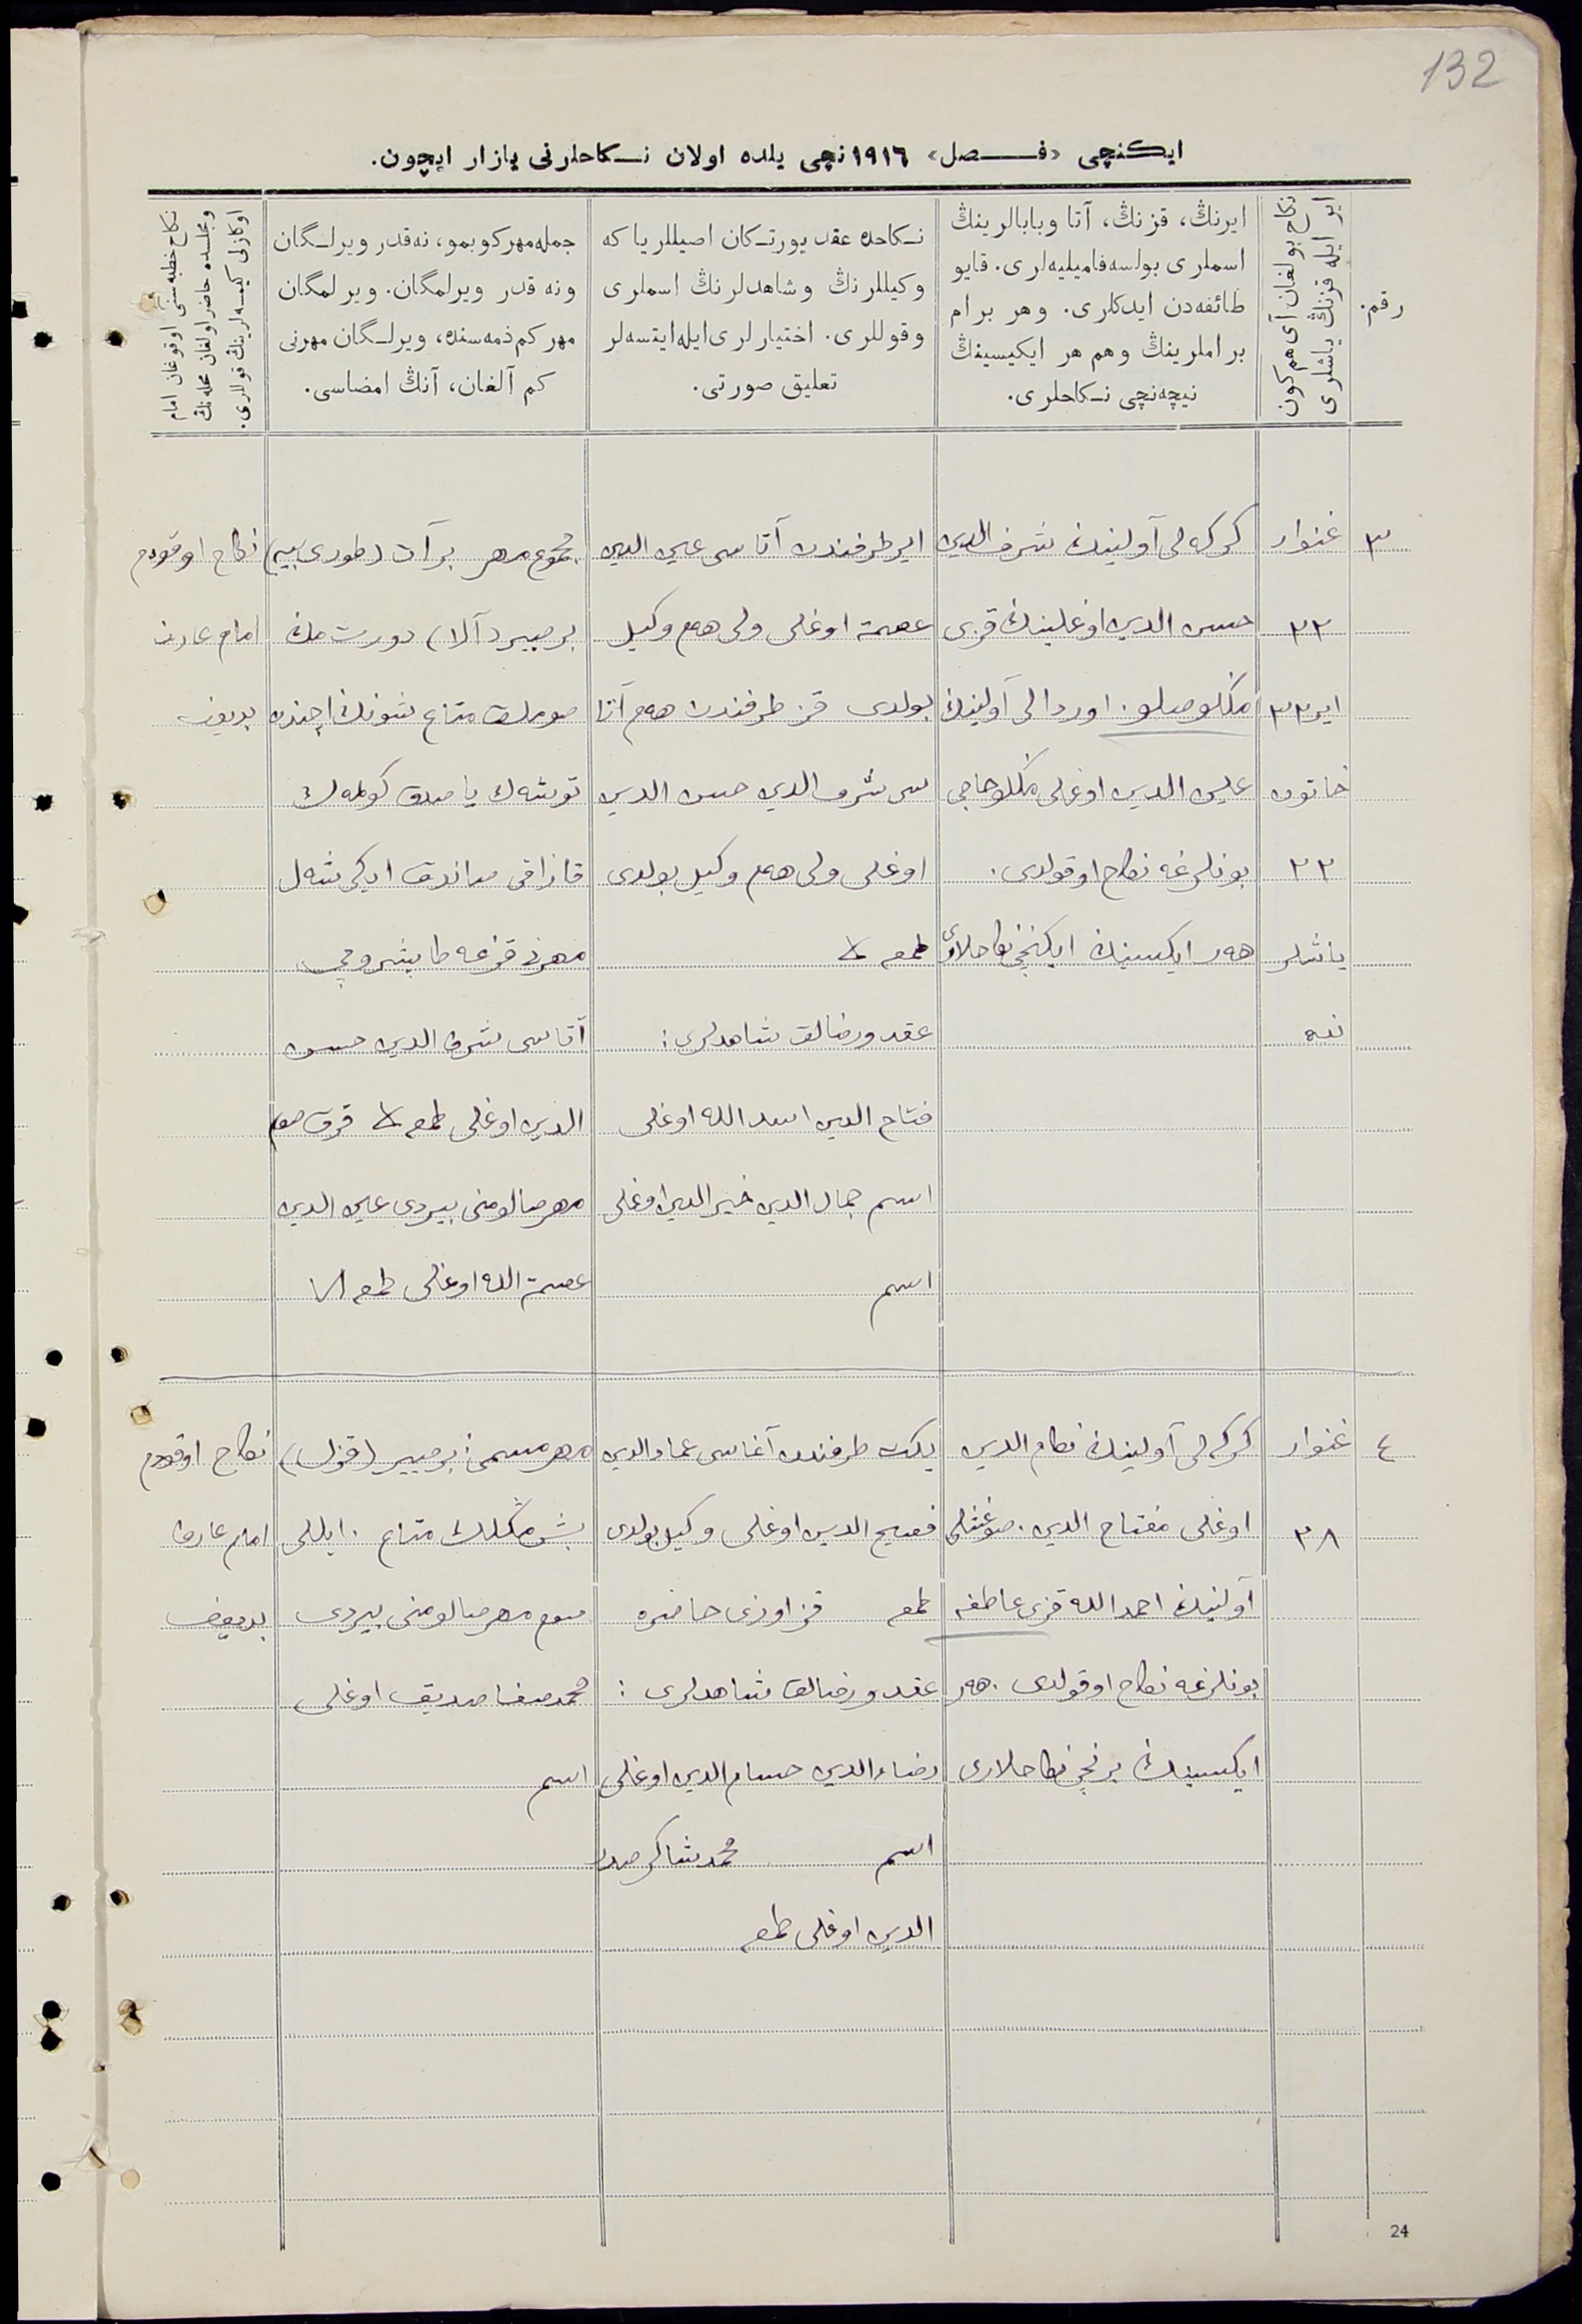 132
ایكنچی «فصل» ١٩١٦ نچی یلده اولان نكاحلرنی یازار ایچون.
رقم.
نكاح بولغان آی هم كون
ایر ایله قزنڭ یاشلری
ایرنڭ، قزنڭ، آتا وبابالرینڭ
اسملری بولسه فامیلیه‌لری. قایو
طائفه‌دن ایدكلری. وهر برام
براملرینڭ وهم هر ایكیسینڭ
نیچه‌نچی نكاحلری.
نكاحده عقد یورتكان اصیللر یا كه
وكیللرنڭ وشاهدلرنڭ اسملری
وقوللری. اختیارلری ایله ایتسه‌لر
تعلیق صورتی.
جمله مهر كوبمو، نه‌قدر ویرلگان
ونه قدر ویرلمگان. ویرلمگان
مهر كم ذمه‌سنده، ویرلگان مهرنی
كم آلغان، آنڭ امضاسی.
نكاح خطبه‌سنی اوقوغان امام
ومجلسده حاضر اولغان محله‌نڭ
اوكازلی كیمسه‌لرینڭ قوللری.
٣
غنوار
٢٢
ایر ٣٣
خاتون
٢٢
یاشلر
نده
كركه‌لی آولیندن شرف الدین
حسن الدین اوغلینڭ قزی
منكلوصلو. اوردالی آولیندن
علیم الدین اوغلی منكلوحاجی
بونلرغه نكاح اوقولدی.
هه‌ر ایكسینڭ ایكنچی نكاحلاری
ایر طرفندن آتاسی علیم الدین
عصمة اوغلی ولی هم وكیل
بولدی قز طرفندن هم آتا
سی شرف الدین حسن الدین
اوغلی ولی هم وكیل بولدی
طمعه
عقد ورضالق شاهدلری:
فتاح الدین اسد الله اوغلی
اسم جمال الدین خیرالدین اوغلی
اسم
مجموع مهر بر آت (طوری بیه)
بر صیر (آلا) دورت مڭ
صوملق متاع شونڭ اچنده
توشه‌ك یاصدق كولمه‌ك
قازاقی صاندق ایكی شه‌ل
مهرنی قزغه طابشروچی
آتاسی شرف الدین حسن
الدین اوغلی طمعه قرق صوم
مهر صالومنی بیردی علیم الدین
عصمة الله اوغلی طمعه
نكاح اوقودم
امام عارف
بدیعوف
٤
غنوار
٢٨
كركه‌لی آولیندن نظام الدین
اوغلی مفتاح الدین.
آولیندن احمد الله قزی عاطفه
بونلرغه نكاح اوقولدی. هه‌ر
ایكسینڭ برنچی نكاحلاری
یكت طرفندن آغاسی عماد الدین
فصیح الدین اوغلی وكیل بولدی
طمعه قز اوزی حاضره
عقد ورضالق شاهدلری:
رضاء الدین حسام الدین اوغلی
اسم محمد شاكر صدر
الدین اوغلی طمعه
مهر مسمی: بر صیر (قزل)
بش مڭلك متاع. ایللی
صوم مهر صالومنی بیردی
محمد صفا صدیق اوغلی
اسم
نكاح اوقودم
امام عارف
بدیعوف
24